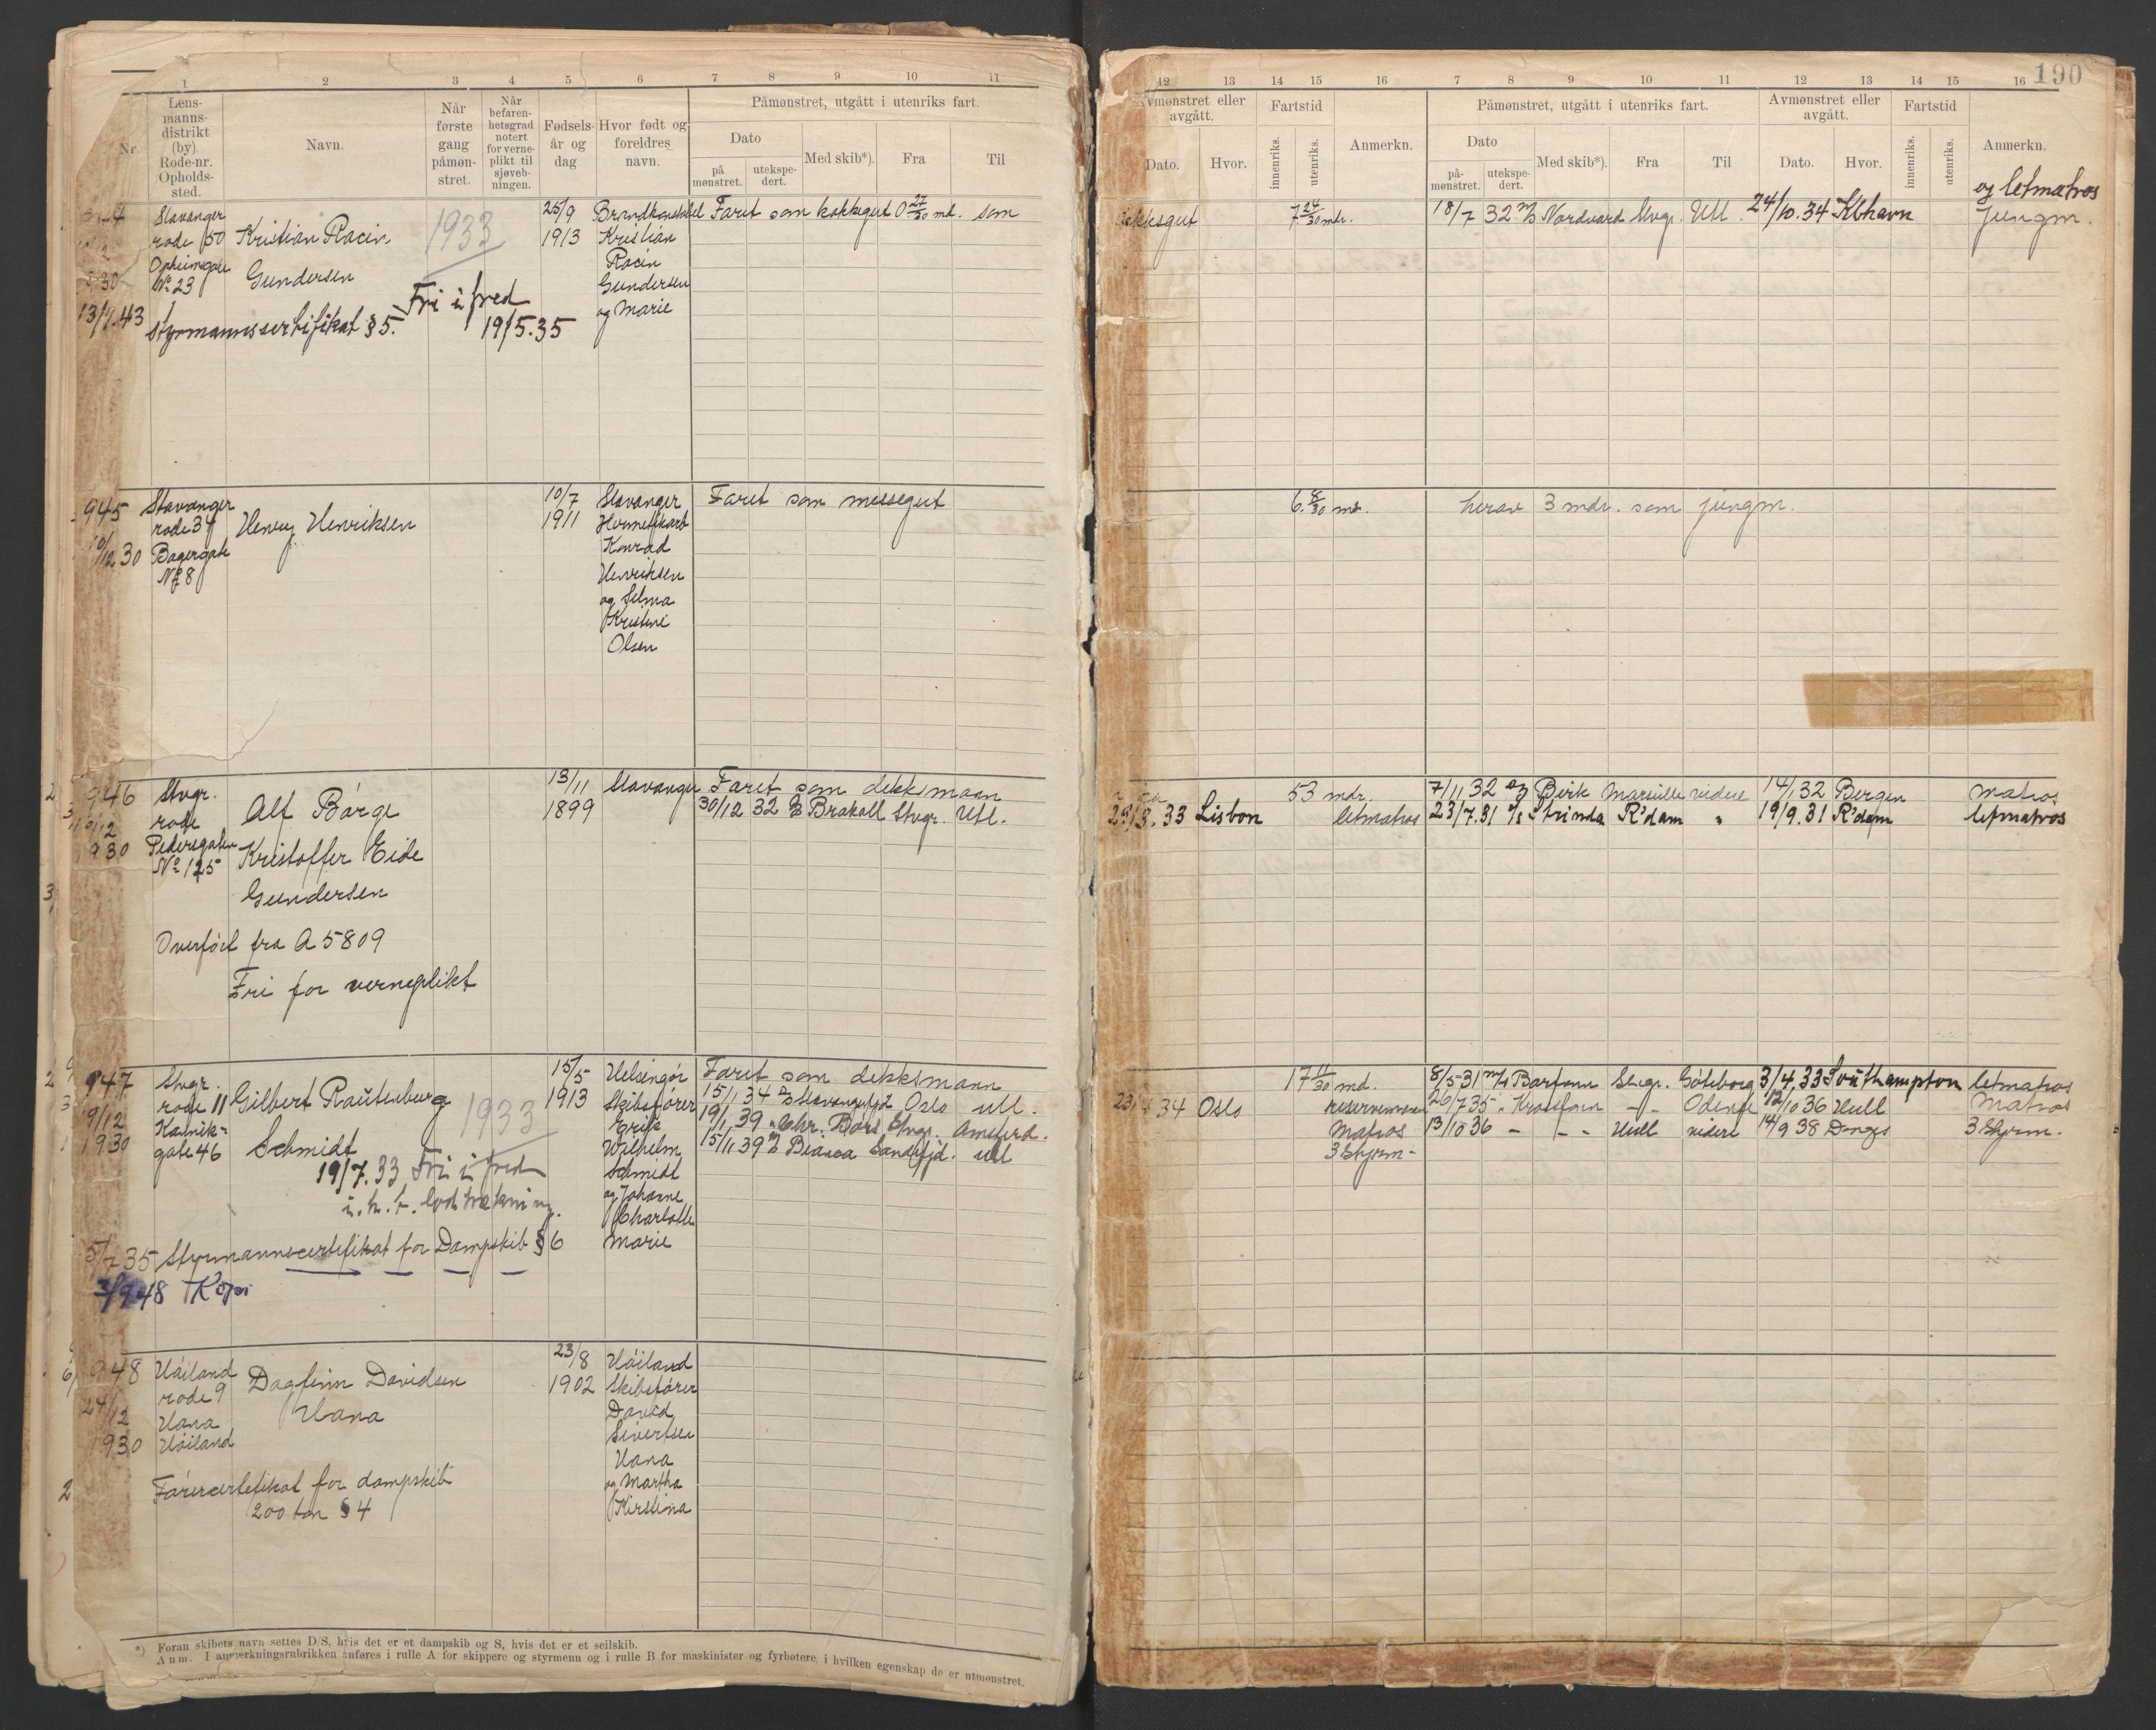 1 2 3 4 5 6 7 8 9 10 11
Nr.
Lens-
manns-
distrikt
(by).
Rode-nr.
Opholds-
sted.
Navn.
Når
første
gang
påmøn-
stret.
Når
befaren-
hetsgrad
notert
for verne-
plikt til
sjøveb-
ningen.
Fødsels-
år og
dag
Hvor født og
foreldres
navn.
Påmønstret, utgått i utenriks fart.
Dato
på
mønstret.
utekspe-
dert.
Med skib*).
Fra
Til
Stavanger
rode 50
No 23
Kristian Racin
Gundersen
1933
25/9
1913
Kristian
Racin
Gundersen
og Marie
Faret som kokkegut 0 27/30 md. som
Fri i fred
19/5.35
Styrmannssertifikat § 5.
945
10/12 30
Stavanger
rode 34
Bagergate
No 8
Henry Henriksen
10/7
1911
Stavanger
Konrad
Henriksen
og Selma
Kristine
Olsen
Faret som messegut
946
930
Stvgr.
rode
Pedersgaten
No 125
Alf Börge
Kristoffer Eide
Gundersen
13/11
1899
Stavanger
Faret som dekksmann
30/12 32 Brakoll Stvgr. Utl.
Overført fra A 5809
Fri for verneplikt
947
19/12
1930
Stvgr.
rode 11
gate 46
Gilbert Rautenburg
Schmidt
1933
15/5
1913
Helsingør
Skibsfører
Erik
Wilhelm
Schmidt
og Johanne
Charlotte
Marie
Faret som dekksmann
15/1 34 Stavangerfj. Oslo utl.
19/1 39 Chr. Bors Stvgr. Amsterd.
15/11 39 Biasca Sandefjd. utl
19/7.33 Fri i fred
i.h.t. lodtrekning.
5/7 35 Styrmannscertifikat for Dampskib § 6
3/9 48 Kopi
948
24/12
1930
Høiland
rode 9
Hana
Høiland
Dagfinn Davidsen
Hana
23/8
1902
Høiland
Skibsfører
David
Sivertsen
Hana
og Martha
Kirstina
Førercertifikat for dampskib
200 ton § 4
*) Foran skibets navn settes D/S, hvis det er et dampskib og S, hvis det er et seilskib.
Anm. I anmerkningsrubrikken anføres i rulle A for skippere og styrmenn og i rulle B for maskinister og fyrbøtere, i hvilken egenskap de er utmønstret.
190
12 13 14 15 16 7 8 9 10 11 12 13 14 15 16
Avmønstret eller
avgått.
Dato.
Hvor.
Fartstid
innenriks.
utenriks.
Anmerkn.
Påmønstret, utgått i utenriks fart.
Dato
på-
mønstret.
utekspe-
dert.
Med skib*).
Fra
Til
Avmønstret eller
avgått.
Dato.
Hvor.
Fartstid
innenriks.
utenriks.
Anmerkn.
og letmatros
7 24/30 mdr. 18/7 32 Nordvard Stvgr. Utl. 24/10.34 Kbhavn Jungm.
6 8/30 md. herav 3 mdr. som jungm.
53 mdr. 7/11 32 Birk Marseille videre 14/1 32 Bergen matros
33 Lisbon letmatros 23/7.31 Strinda R'dam " 19/9.31 R'dam letmatros
17 11/30 md. 8/5 31 Barfonn Stvgr. Göteborg 3/4.33 Southampton letmatros
34 Oslo 26/7 35 Krossfonn - - Odense 12/10 36 Hull Matros
Matros 13/10 36 - - - Hull videre 14/9 38 3 Styrm.
3 Styrm -